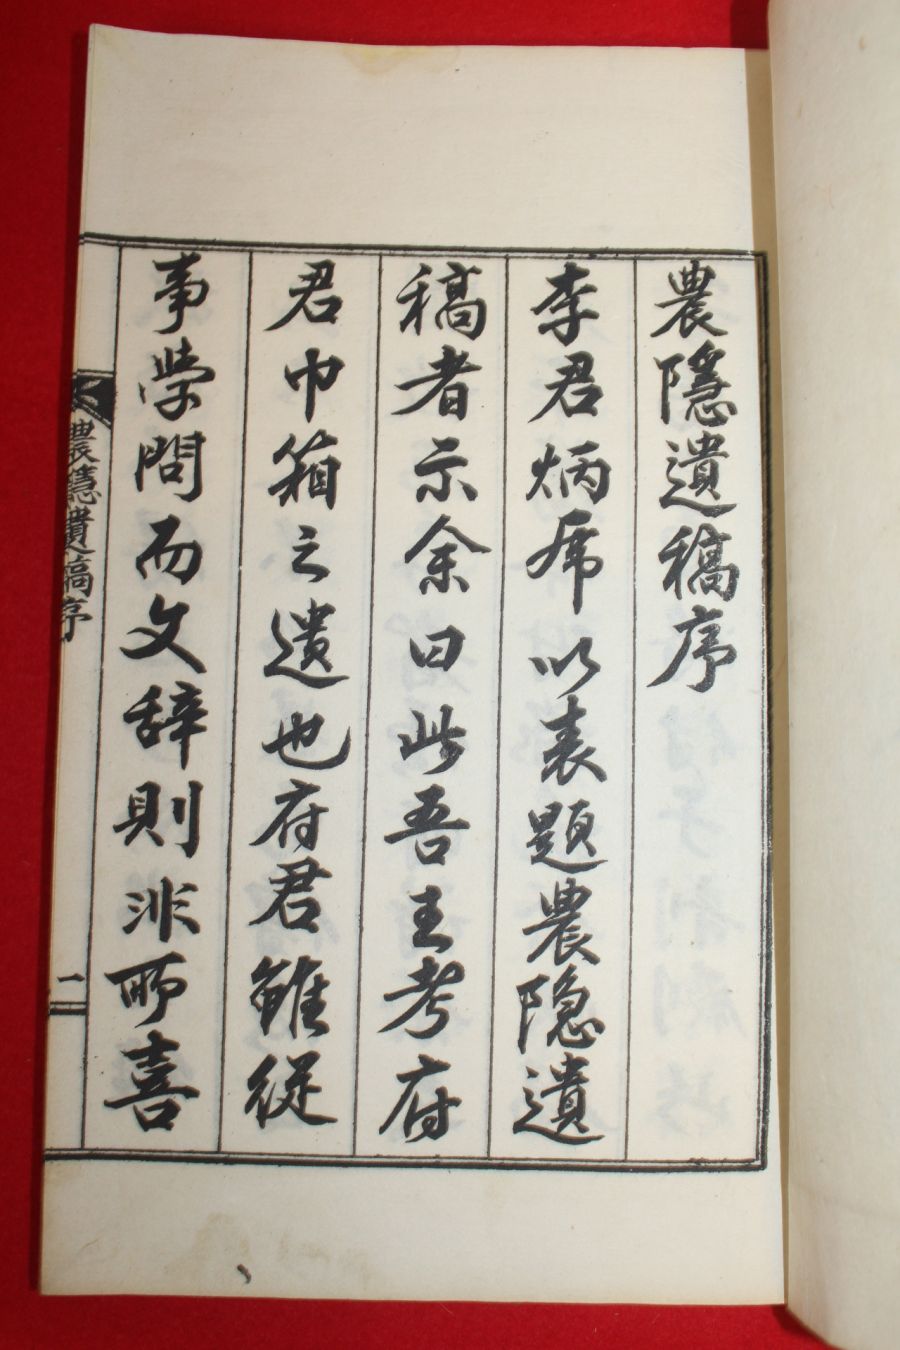 農隱遺稿序
李君炳 以表題農隐遺
稿者示余曰此吾王考府
君巾箱之遺也府君雖從
事學問而文辞則非所喜
農隱遺稿序
一